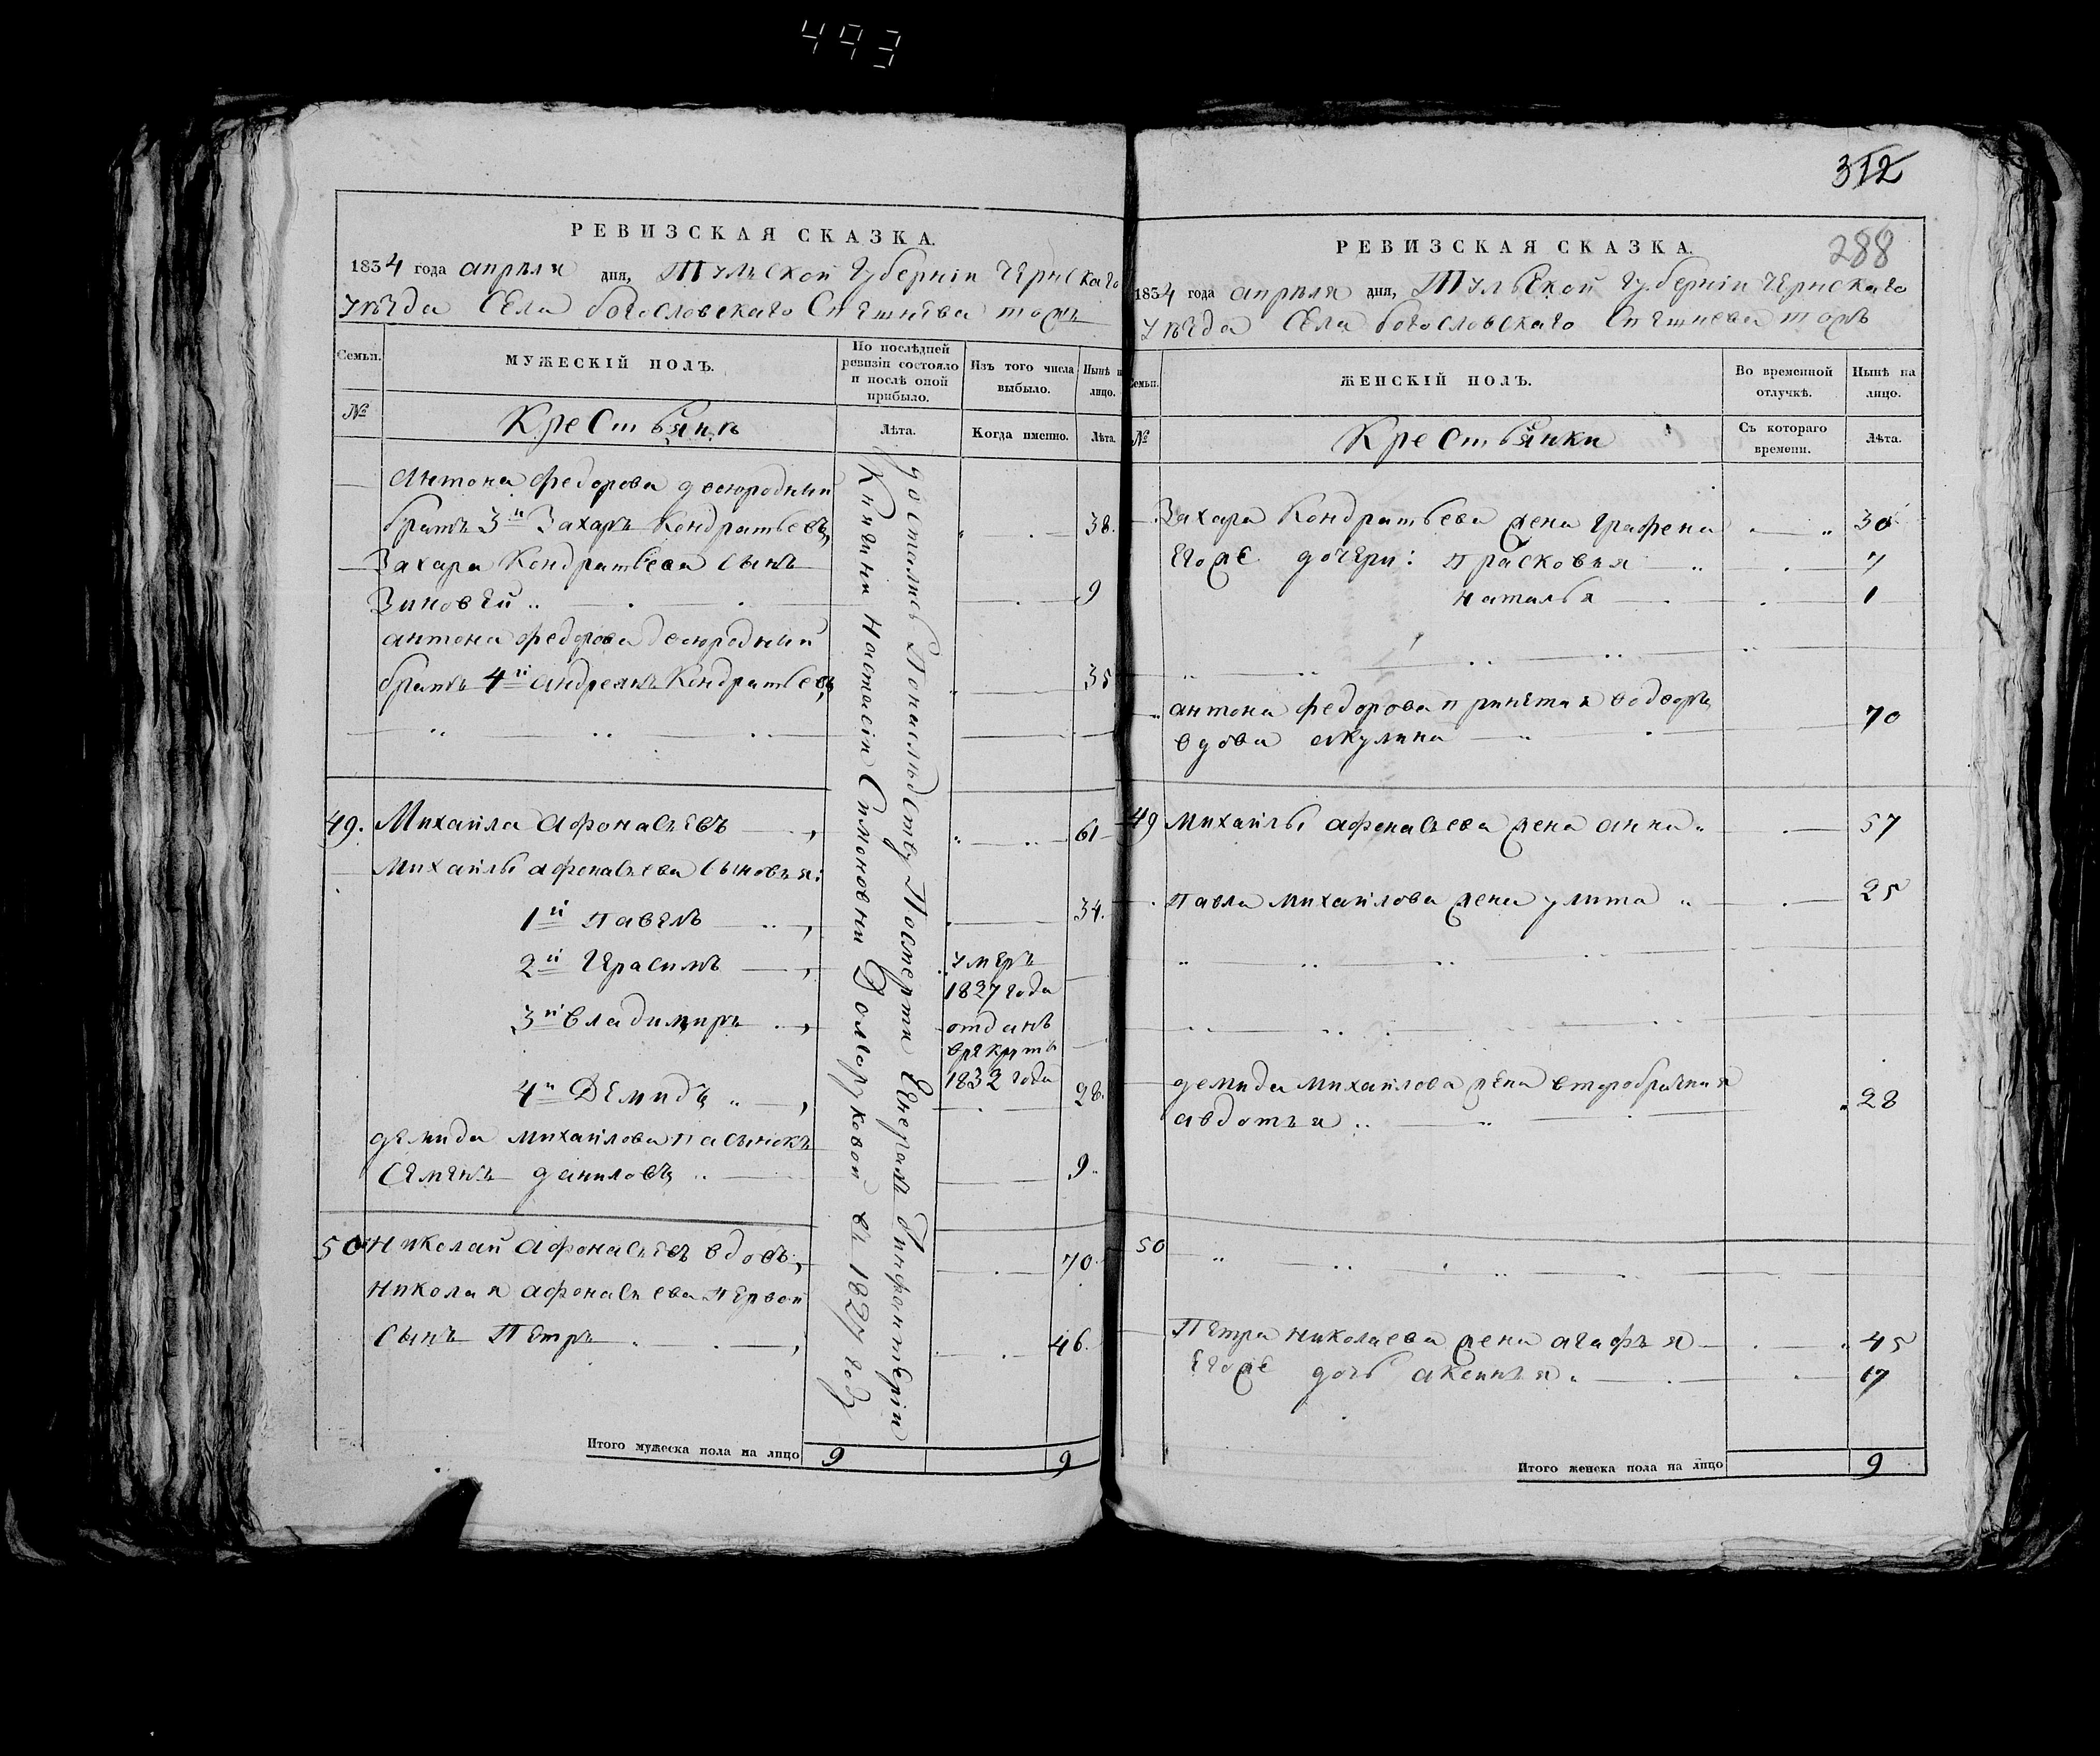 493
РЕВИЗСКАЯ СКАЗКА.
1834 года апреля дня, Тульской Губерніи Чернскаго
уезда Села богословскаго Спешнева тожъ
Семьи.
МУЖЕСКІЙ ПОЛЪ.
По послѣдней ревизіи состояло и послѣ оной прибыло.
Изъ того числа выбыло.
Нынѣ н лицо.
№
Крестьянъ
Лѣта.
Когда именно.
Лѣта.
Антона Федорова двоюродный
братъ 3й Захаръ Кондратьевъ 38.
Захара Кондратьева сынъ
Зиновей 9
антона федорова двоюродный
братъ 4й андреянъ Кондратьевъ 35
49. Михайла афонасьевъ 61
Михайлы афонасьева сыновья:
1й павелъ 34.
2й Герасимъ умеръ 1827 года
3й владимиръ отданъ врекруты 1832 года
4й Демидъ 28.
демида михайлова пасынокъ
Семенъ даниловъ 9
50 Николай афонасьевъ вдовъ, 70
николая афонасьева первой
сынъ Петръ 46.
достались Понаследству Посмерти Енерала Инфантеріи
Княгини Настасіи Симоновны Долгоруковой въ 1827 году
Итого мужеска пола на лицо 9 9
312
288
РЕВИЗСКАЯ СКАЗКА.
1834 года апреля дня, Тульской Губерніи Чернскаго
уезда Села богословскаго Спешнева тожъ
Семьи.
ЖЕНСКІЙ ПОЛЪ.
Во временной отлучкѣ.
Нынѣ на лицо.
№
Крестьянки
Съ котораго времени.
Лѣта.
Захара Кондратьева жена Графена 30
Егоже дочери: прасковья 7
наталья 1
антона федорова принетая водворъ
вдова акулина 70
49 Михайлы афонасьева жена анна 57
павла михайлова жена улита 25
демида михайлова жена второбрачная
авдотья 28
50
Петра николаева жена агафья 45
Егоже дочь аксинья 17
Итого женска пола на лицо 9